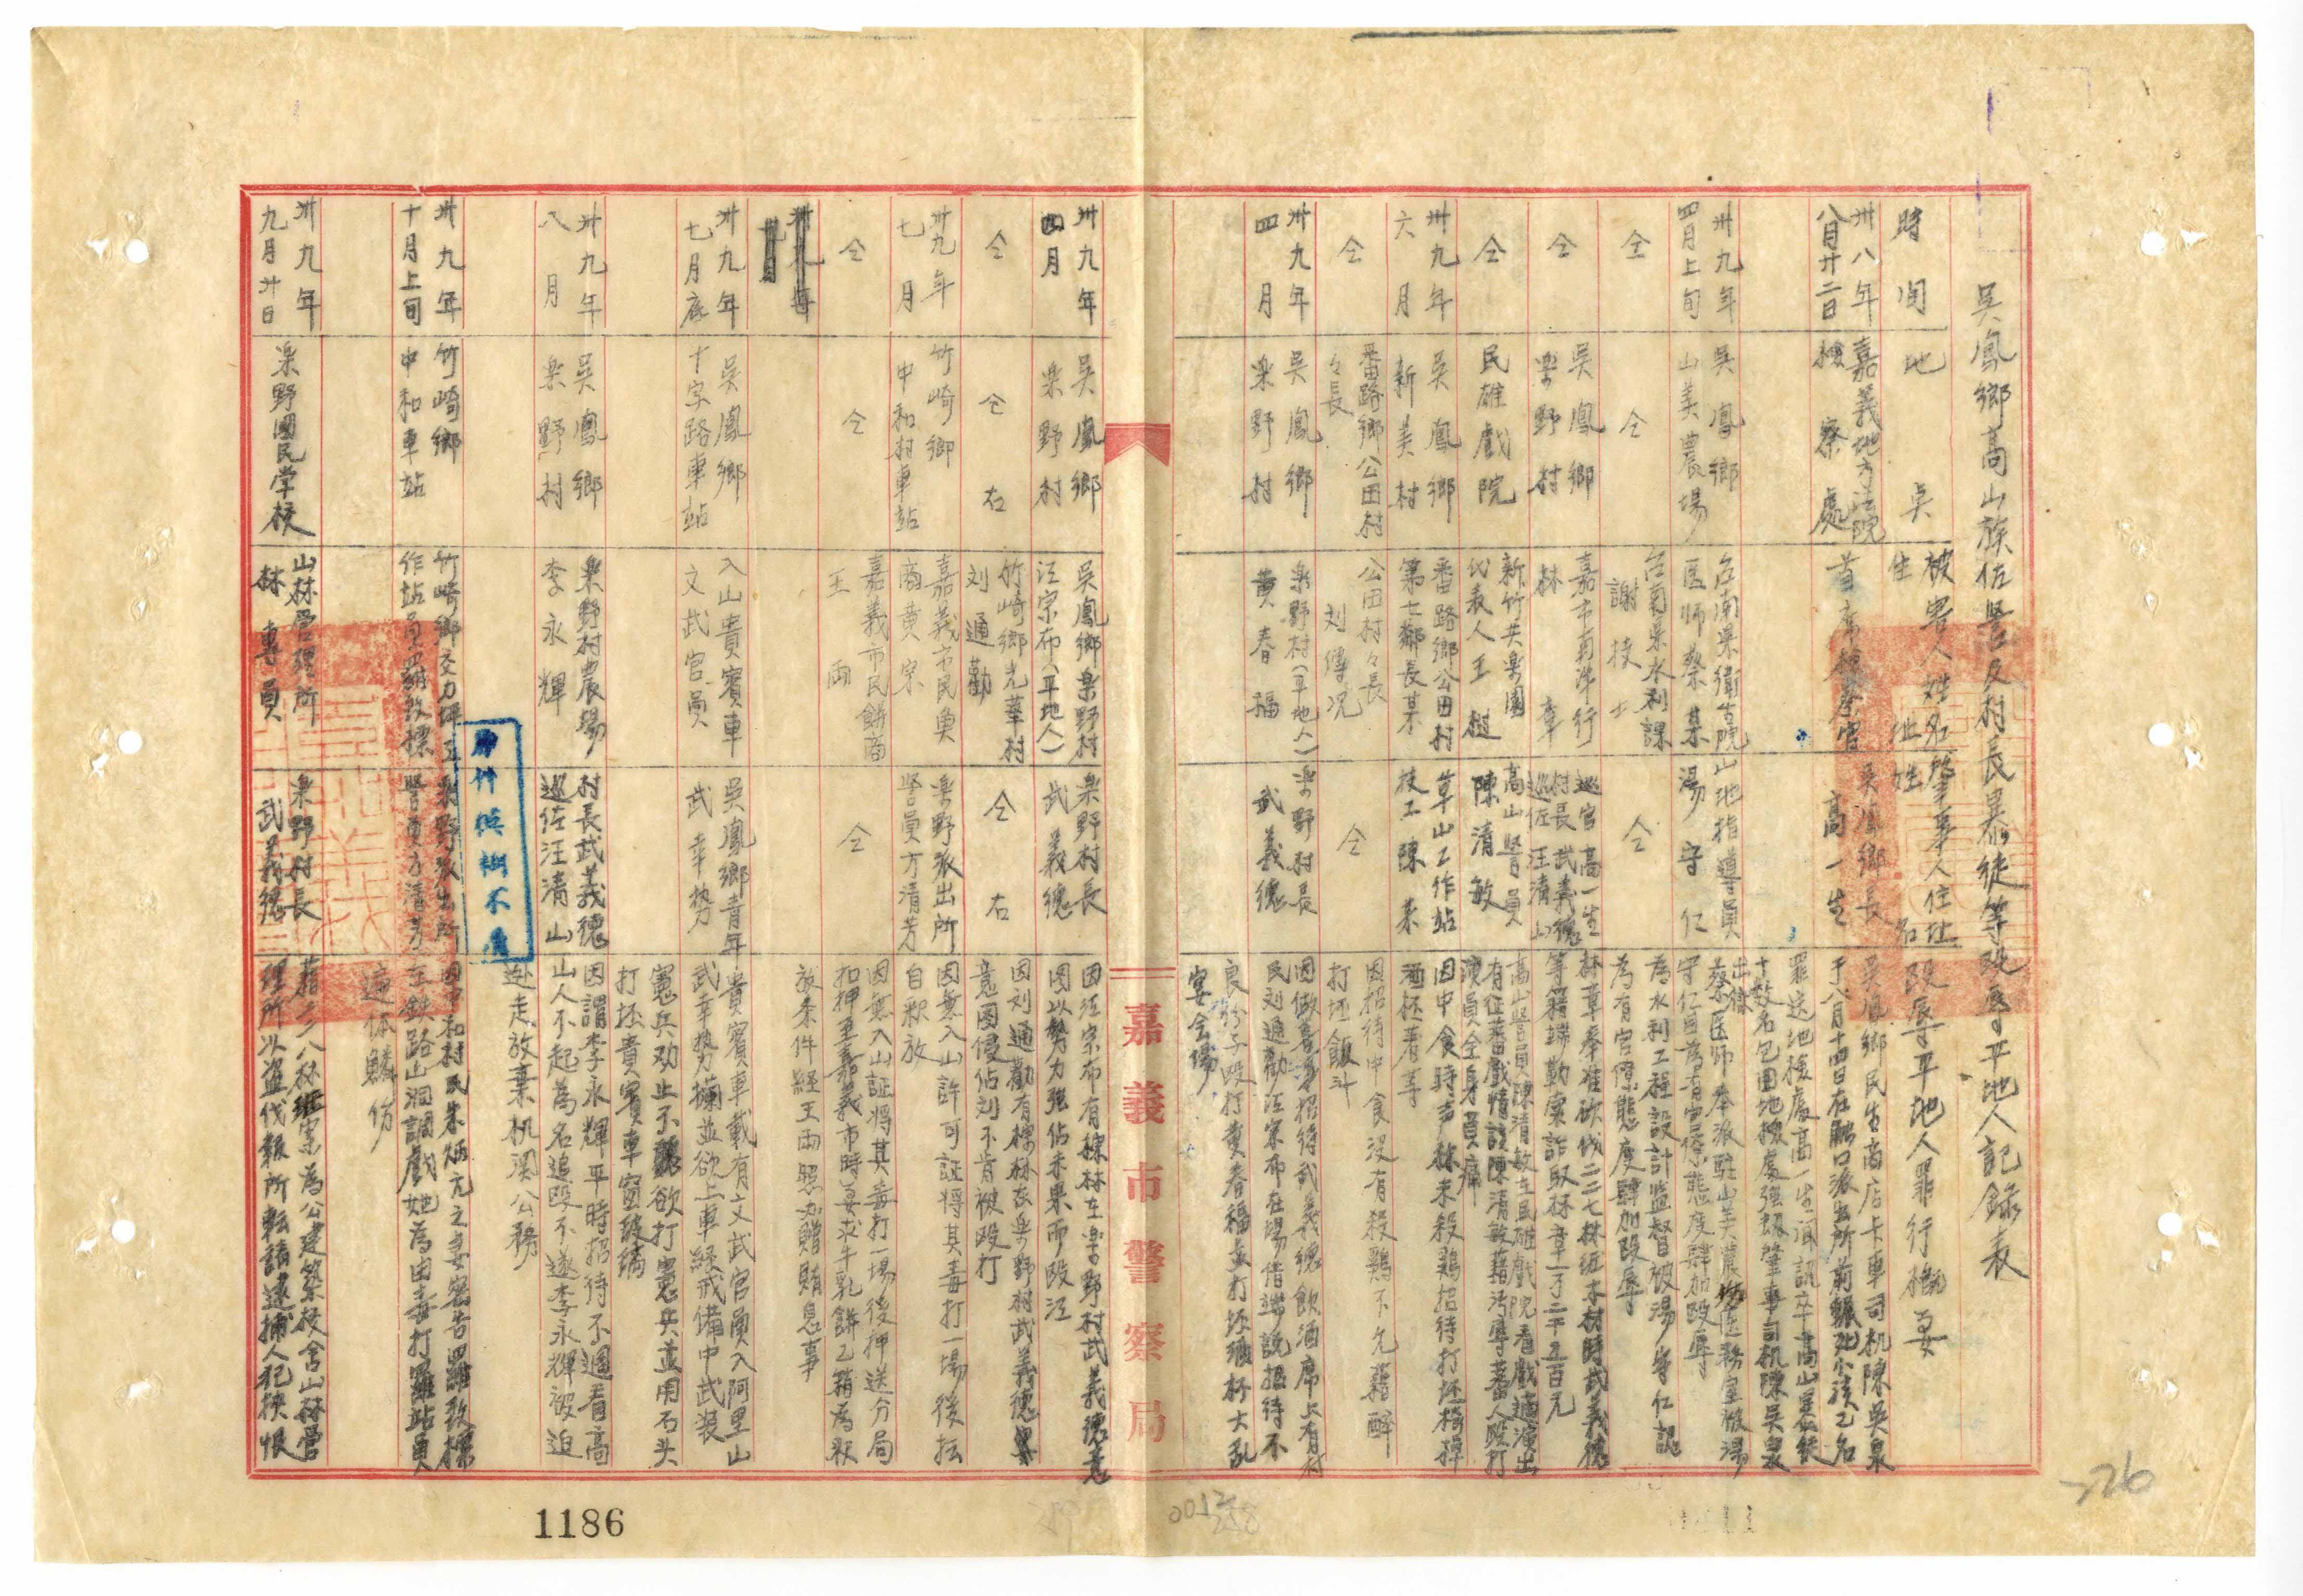 吳鳳鄉高山族佐警及村長暴徒等毆辱平地人記錄表
時間
地吳
被害人姓名
生址
肇事人住址
姓名
毆辱平地人罪行概要
卅八年
八月廿二日
嘉義地方法院
檢察處
首席檢察官
吳鳳鄉長
高一生
吳鳳鄉民生商店卡車司机陳吳泉
于八月十四日在觸口派出所前輾死小孩乙名
罪送地檢處高一生聞訊率高山
十數名包圍地檢處強

肇事司机陳吳泉
出
卅九年
四月上旬
吳鳳鄉
山美農場
台南県衛生院
医师蔡某
山地指導員
湯守仁
蔡医师奉派駐山美農場医務室被湯
守仁目為有官僚態度肆加毆辱
仝
仝
台南県水利課
謝技士
仝
為水利工程設計監督被湯守仁認
為有官僚態度肆加毆辱
仝
吳鳳鄉
樂野村
嘉市南洋行
林章
巡官高一生
村長武義德
巡佐汪清山
林章奉准砍伐二二七林班木材時武義德
等籍端勒索詐取林章一万二千五百元
仝
民雄戲院
新竹共樂園
代表人王樹
高山警員
陳清敏
高山警員陳清敏在民雄戲院看戲適演出
有征蕃戲情該陳清敏藉污辱蕃人毆打
演員全身
卅九年
六月
吳鳳鄉
新美村
番路鄉公田村
第七鄰長某
草山工作站
技工陳来
因中食時
林未殺鶏招待打坯椅棹
酒坯着手
仝
番路鄉公田村
々長
公田村々長
刘傳况
仝
因招待中食没有殺鶏不允藉醉
打坯飯斗
卅九年
四月
吳鳳鄉
樂野村
樂野村(平地人)
黄春福
樂野村長
武義德
因做喜事招待武義德飲酒席上有村
民刘通勸汪宗布在場借端説招待不
良
毆打黄春福並打坯碗杯大乱
宴会場
嘉義市警察局
卅九年
四月
吳鳳鄉
樂野村
吳鳳鄉樂野村
汪宗布(平地人)
樂野村長
武義德
因汪宗布有棕林在樂野村武義德意
图以勢力强佔未果而毆汪
仝
仝右
竹崎鄉光華村
刘通勸
仝右
因刘通勸有棕林在樂野村武義德
意图侵佔刘不肯被毆打
卅九年
七月
竹崎鄉
中和村車站
嘉義市民魚
商黄宗
樂野派出所
警員方清芳
因無入山許可証将其毒打一場後
自釈放
仝
仝
嘉義市民餅商
王両
仝
因無入山証将其毒打一場後押送分局
扣押至嘉義市時要求牛乳餅乙箱為釈
放条件経王両照办贈賄息事
卅九年
七月底
吳鳳鄉
十字路車站
入山貴賓車
文武官員
吳鳳鄉青年
武幸势
貴賓車載有文武官員入阿里山
武幸势攔並欲上車経戒備中武装
憲兵劝止不聽欲打憲兵並用石头
打坯貴賓車窗玻璃
卅九年
八月
吳鳳鄉
樂野村
樂野村農場
李永輝
村長武義德
巡佐汪清山
因謂李永輝平時招待不週看高
山人不起為名追毆不遂李永輝被迫
逃走放棄机関公務
卅九年
十月上旬
竹崎鄉
中和車站
竹崎鄉交力坪工
作站員羅敦標
樂野派出所
警員方清芳
因中和村民朱炳亢之妻密告羅敦標
在鉄路山洞調戲她為由毒打羅站員
遍体鱗伤
卅九年
九月廿日
樂野國民学校
山林管理所
林專員
樂野村長
武義德
理所以盗伐報所転請逮捕人犯挾恨
原件模糊不清
1186
0012